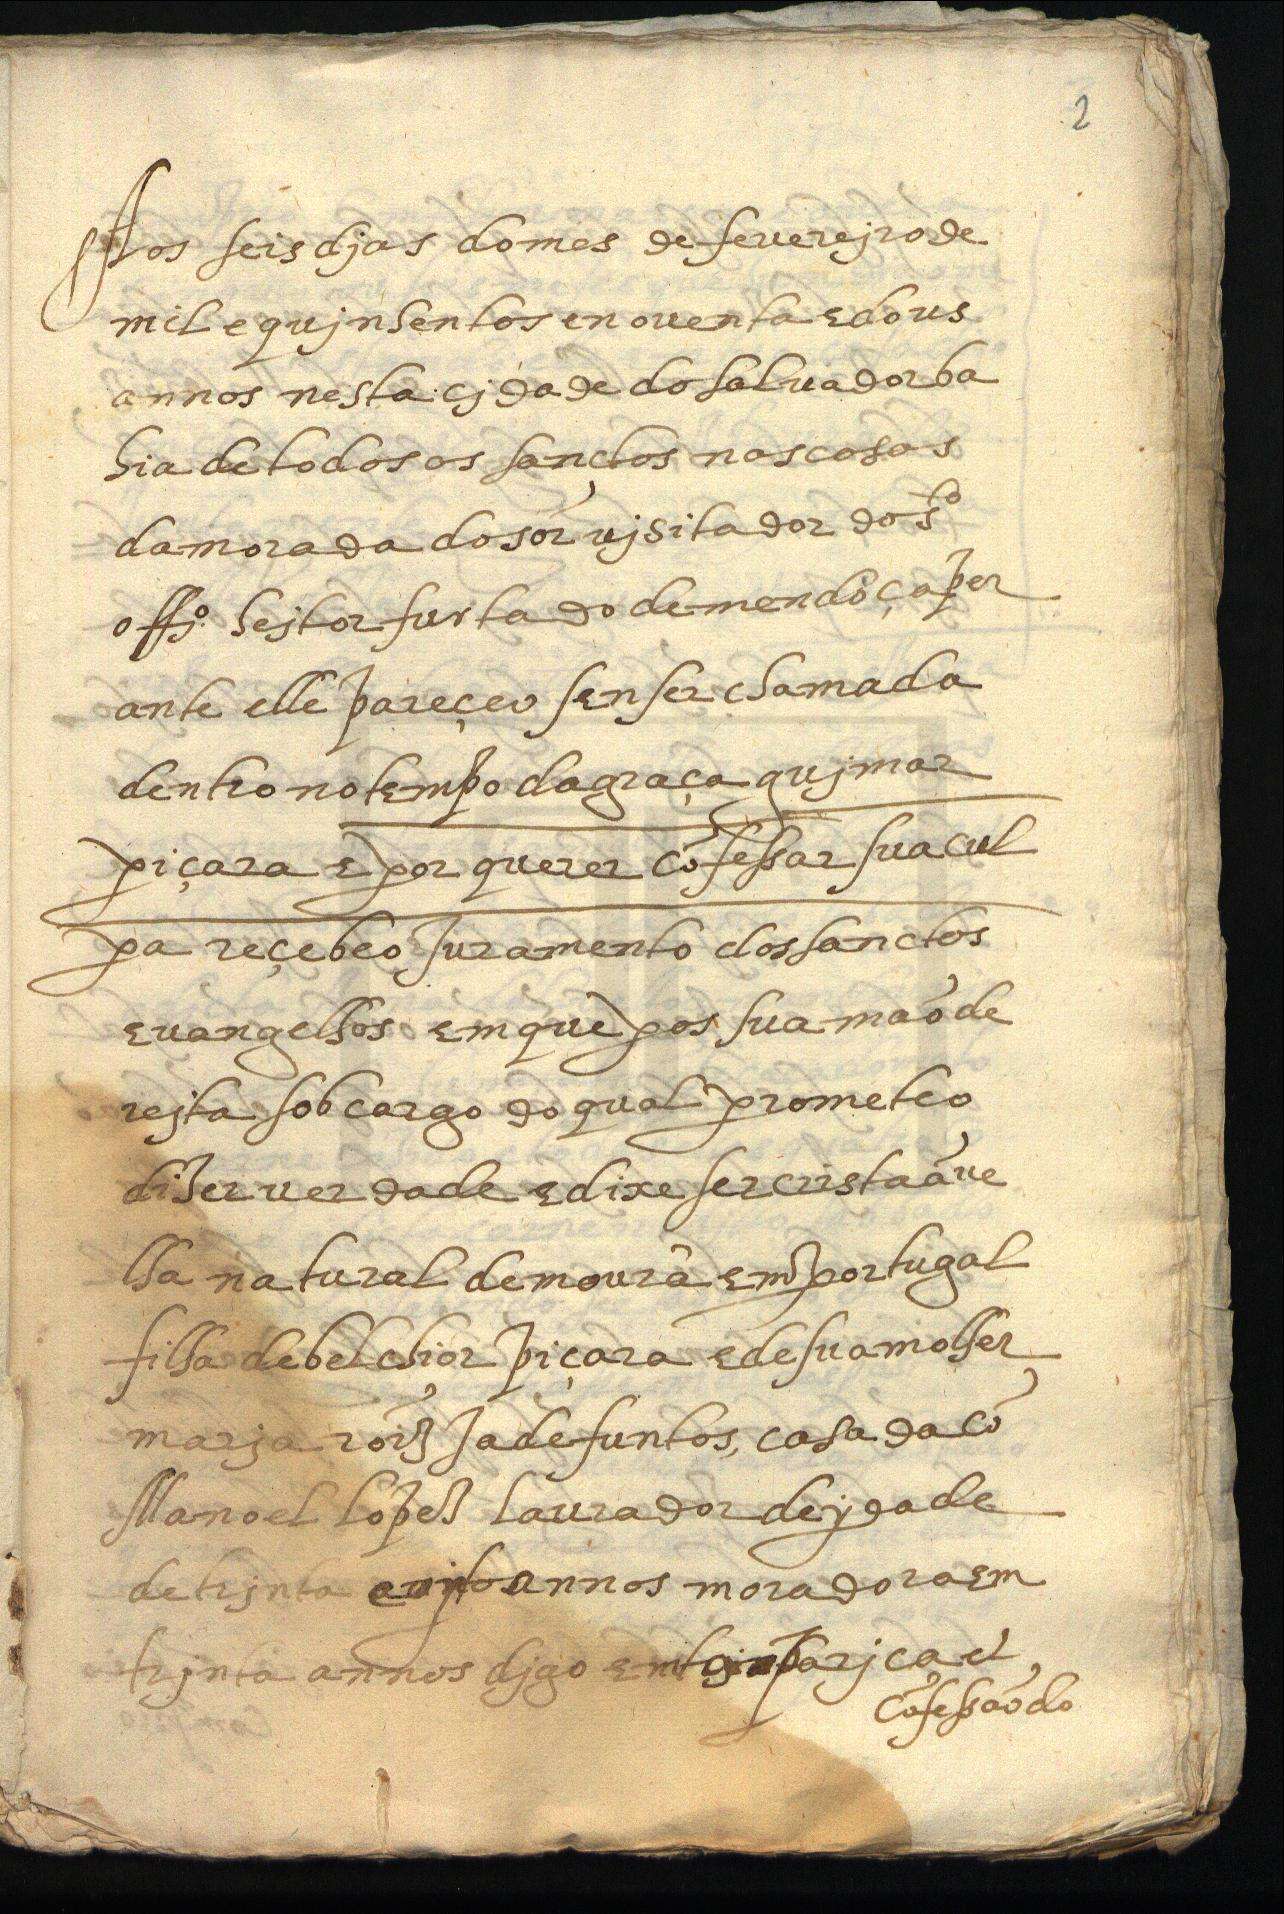 2
Aos seis djas do mes de feuerejro de
mil e qujnhentos e nouenta e dous
annos nesta cjdade do saluador ba
hia de todos os sanctos nas casas
da morada do sõr ujsitador do s.to
offj.o hejtor furtado de mendõça per
ante elle pareçeo sen ser chamada
dentro no tempo da graça gujmar
piçara e por querer cõfessar sua cul
pa reçebeo juramento dos sanctos
euangelhos em que pos sua mão de
rejta sob cargo do qual prometeo
dizer uerdade e dixe ser cristaã ue
lha natural de moura em portugal
filha de belchior piçara e de sua molher
marja roiz ja defuntos, casada cõ
Manoel lopez laurador de jdade
de trjnta e ojto annos moradora em
trjnta annos djgo em taparjca, et
cõfessãodo